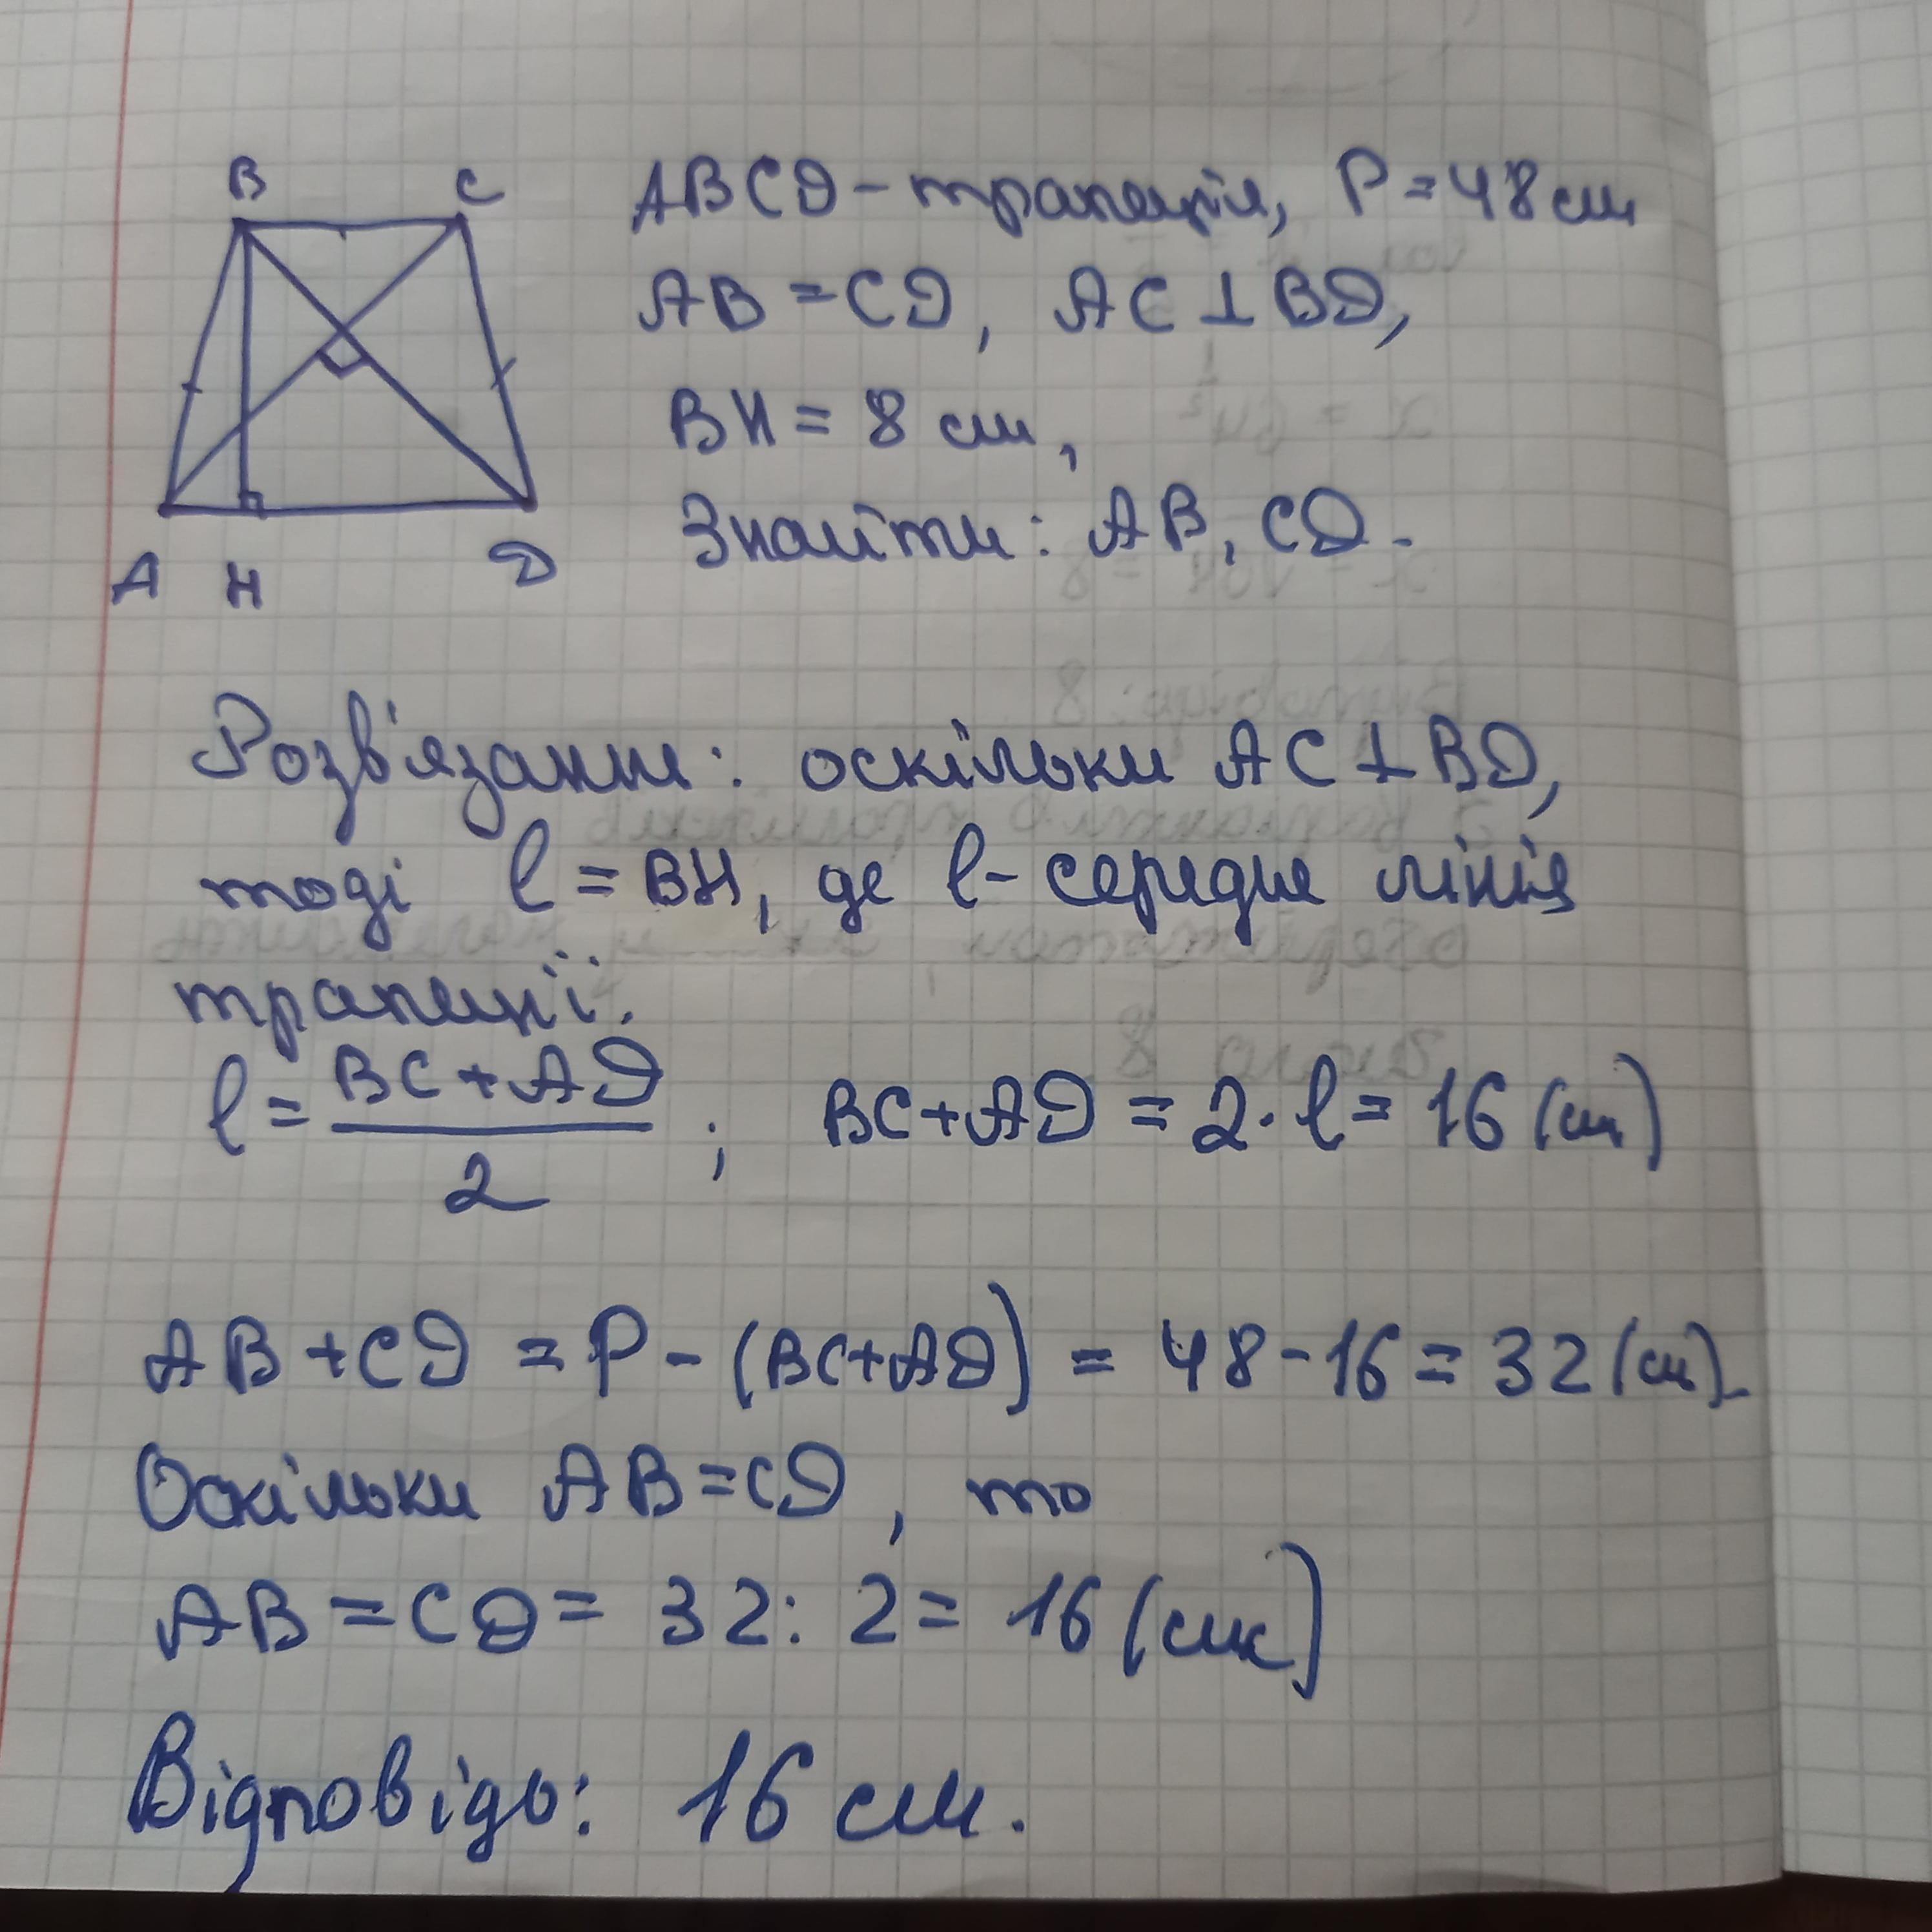 B C
A H D
ABCD - трапеція, P = 48 см
AB = CD, AC ⊥ BD,
BH = 8 см,
Знайти: AB, CD.
Розв'язання: оскільки AC ⊥ BD,
тоді l = BH, де l - середня лінія
трапеції.
l = (BC + AD) / 2 ; BC + AD = 2 · l = 16 (см)
AB + CD = P - (BC + AD) = 48 - 16 = 32 (см)
Оскільки AB = CD, то
AB = CD = 32 : 2 = 16 (см)
Відповідь: 16 см.